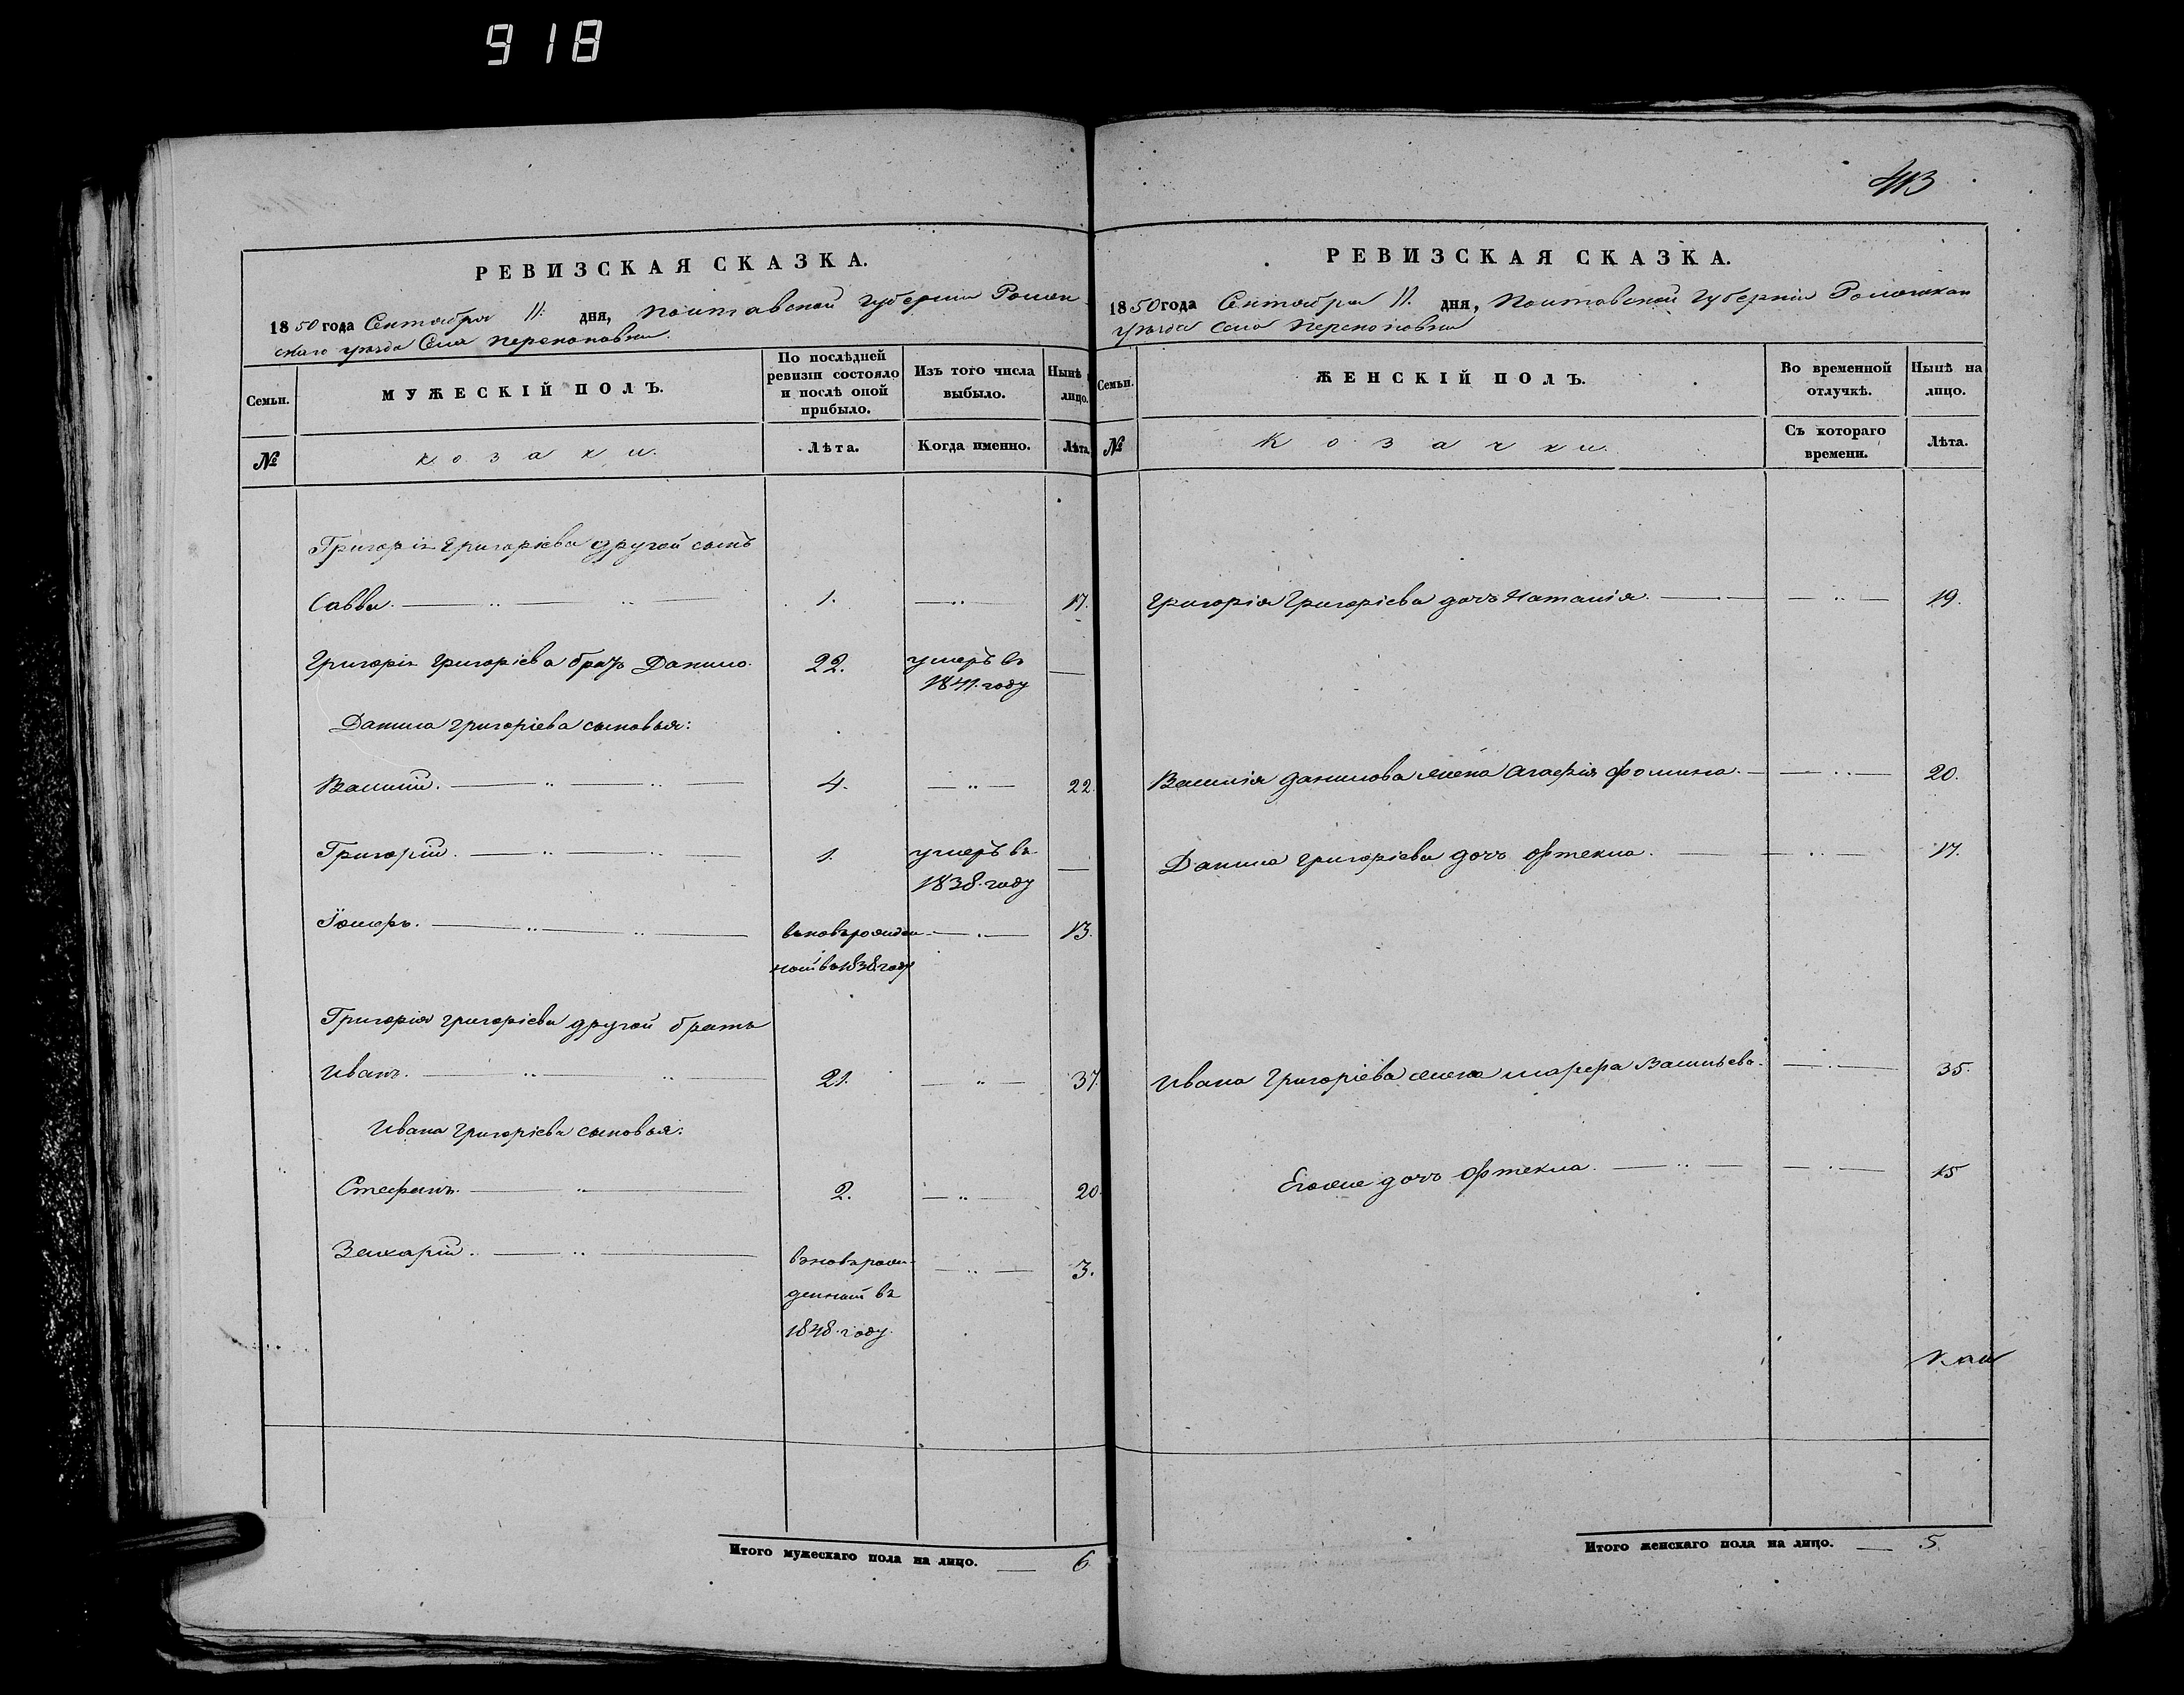 918
413
РЕВИЗСКАЯ СКАЗКА.
1850 года Сентября 11: дня, Полтавской Губернии Ромен-
скаго уезда Села Перекоповки.
Семьи. МУЖЕСКІЙ ПОЛЪ. По послѣдней ревизіи состояло и послѣ оной прибыло. Изъ того числа выбыло. Нынѣ лицо.
№ козаки. Лѣта. Когда именно. Лѣта.
Григорія Григорієва другой сынъ
Савва. 1. 17.
Григорія Григорієва братъ Данило. 22. умеръ въ
1841. году
Данила Григорієва сыновья:
Василій. 4. 22.
Григорій. 1. умеръ въ
1838. году
вновьрожден-
ный въ 1838 году 13.
Григорія Григорієва другой братъ
Иванъ. 21. 37.
Ивана Григорієва сыновья:
Стефанъ. 2. 20
Захарій. вновьрож- 3.
денный въ
1848. году.
Итого мужескаго пола на лицо. 6
РЕВИЗСКАЯ СКАЗКА.
1850 года Сентября 11. дня, Полтавской Губерніи Роменскаго
уезда Села Перекоповки
Семьи. ЖЕНСКІЙ ПОЛЪ. Во временной отлучкѣ. Нынѣ на лицо.
№ Козачки. Съ котораго времени. Лѣта.
Григорія Григорієва дочь Наталія. 19.
Василія Данилова жена Агафія Фомина. 20.
Данила Григорієва дочь Фтекла. 17.
Ивана Григорієва жена Марфа Васильева. 35.
Егоже дочь Фтекла. 15
Итого женскаго пола на лицо. 5.